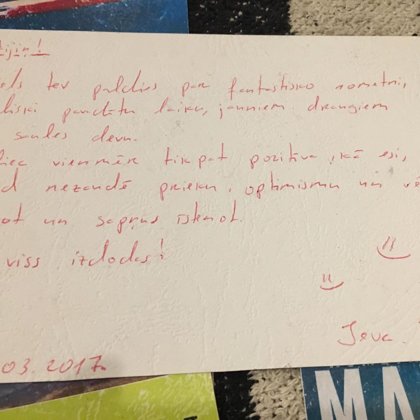 iels tev paldies par fantastisko nometni,
liski pavadītu laiku, jauniem draugiem
saules devu.
vienmēr tikpat pozitīva, kā esi,
nezaudē prieku, optimismu un
un sapņus īstenot.
viss izdodas!
Ieva.
03.2017.
MA